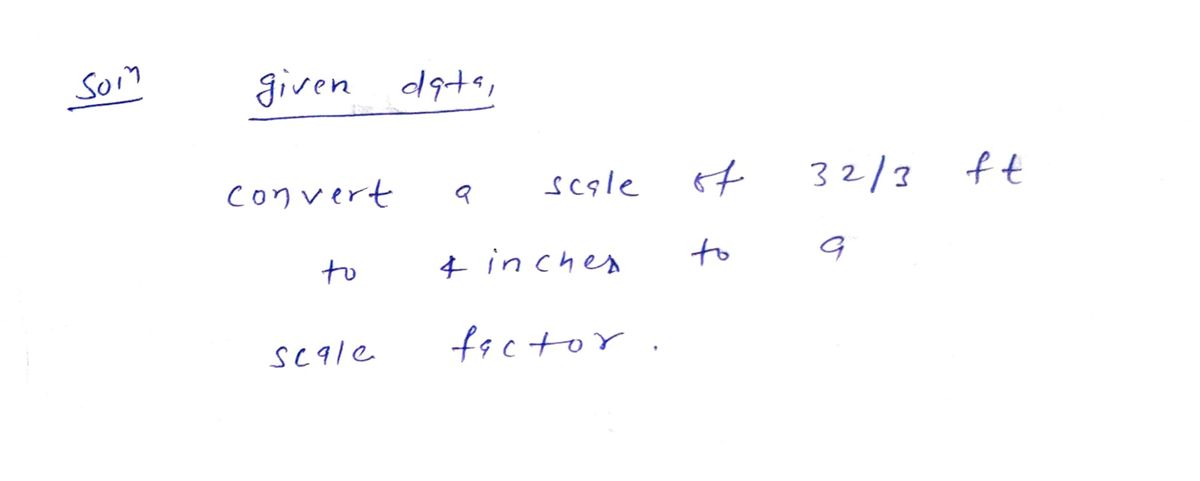 Soln given data,
convert a scale of 32/3 ft
to 4 inches to a
scale factor.